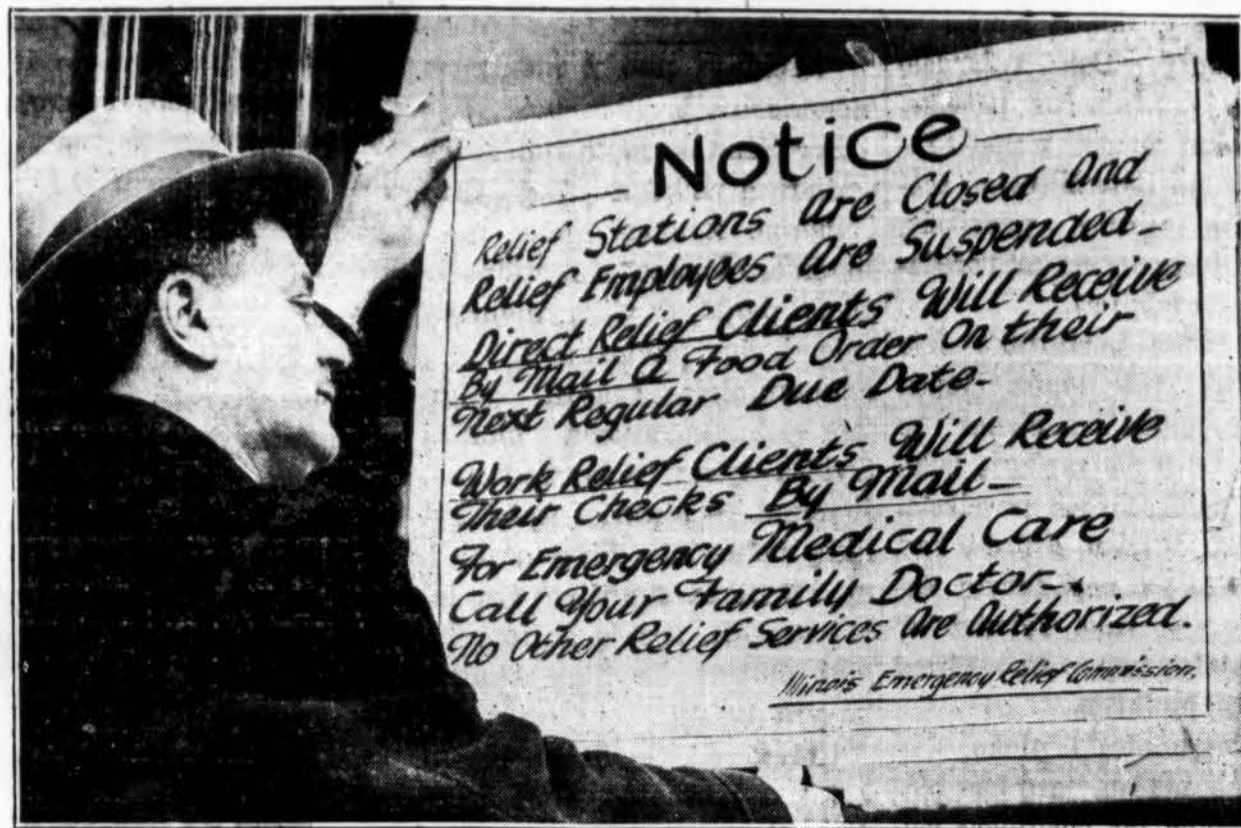 Notice
Relief Stations Are Closed And
Relief Employees Are Suspended—
Direct Relief Clients Will Receive
By Mail A Food Order On their
Next Regular Due Date—
Work Relief Clients Will Receive
Their Checks By Mail—
For Emergency Medical Care
Call Your Family Doctor—.
No Other Relief Services Are Authorized.
Illinois Emergency Relief Commission.